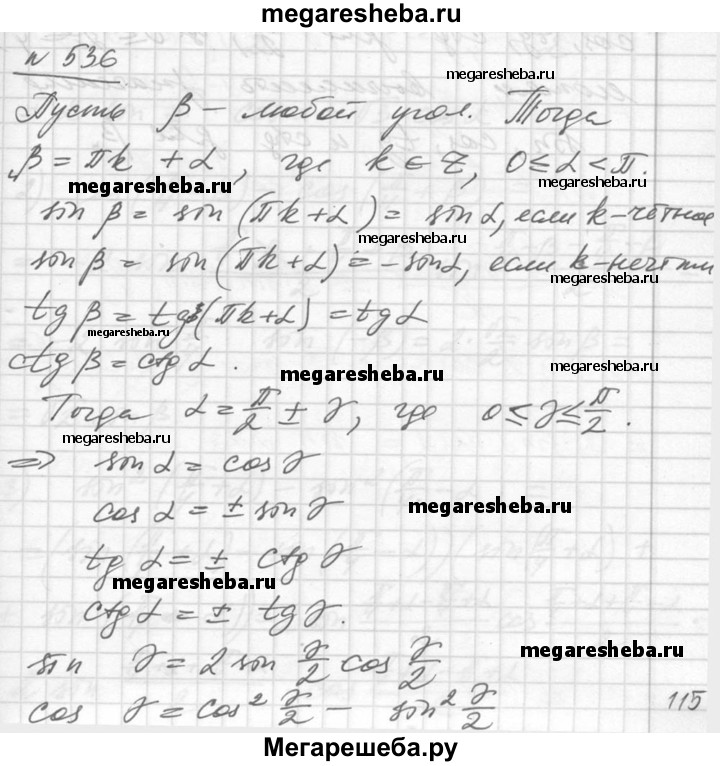 megaresheba.ru
n 536
megaresheba.ru
Пусть β – любой угол. Тогда
β = πk + α, где k ∈ Z, 0 ≤ α < π.
megaresheba.ru
megaresheba.ru
sin β = sin (πk+α) = sin α, если k-чётное
megaresheba.ru
sin β = sin (πk+α) = -sin α, если k-нечётн
megaresheba.ru
tg β = tg (πk+α) = tg α
megaresheba.ru
ctg β = ctg α.
megaresheba.ru
megaresheba.ru
Тогда α = π/2 ± γ, где 0 ≤ γ ≤ π/2.
megaresheba.ru
=> sin α = cos γ
cos α = ± sin γ
megaresheba.ru
tg α = ± ctg γ
megaresheba.ru
ctg α = ± tg γ.
megaresheba.ru
sin γ = 2 sin γ/2 cos γ/2
cos γ = cos² γ/2 – sin² γ/2
115
Мегарешеба.ру